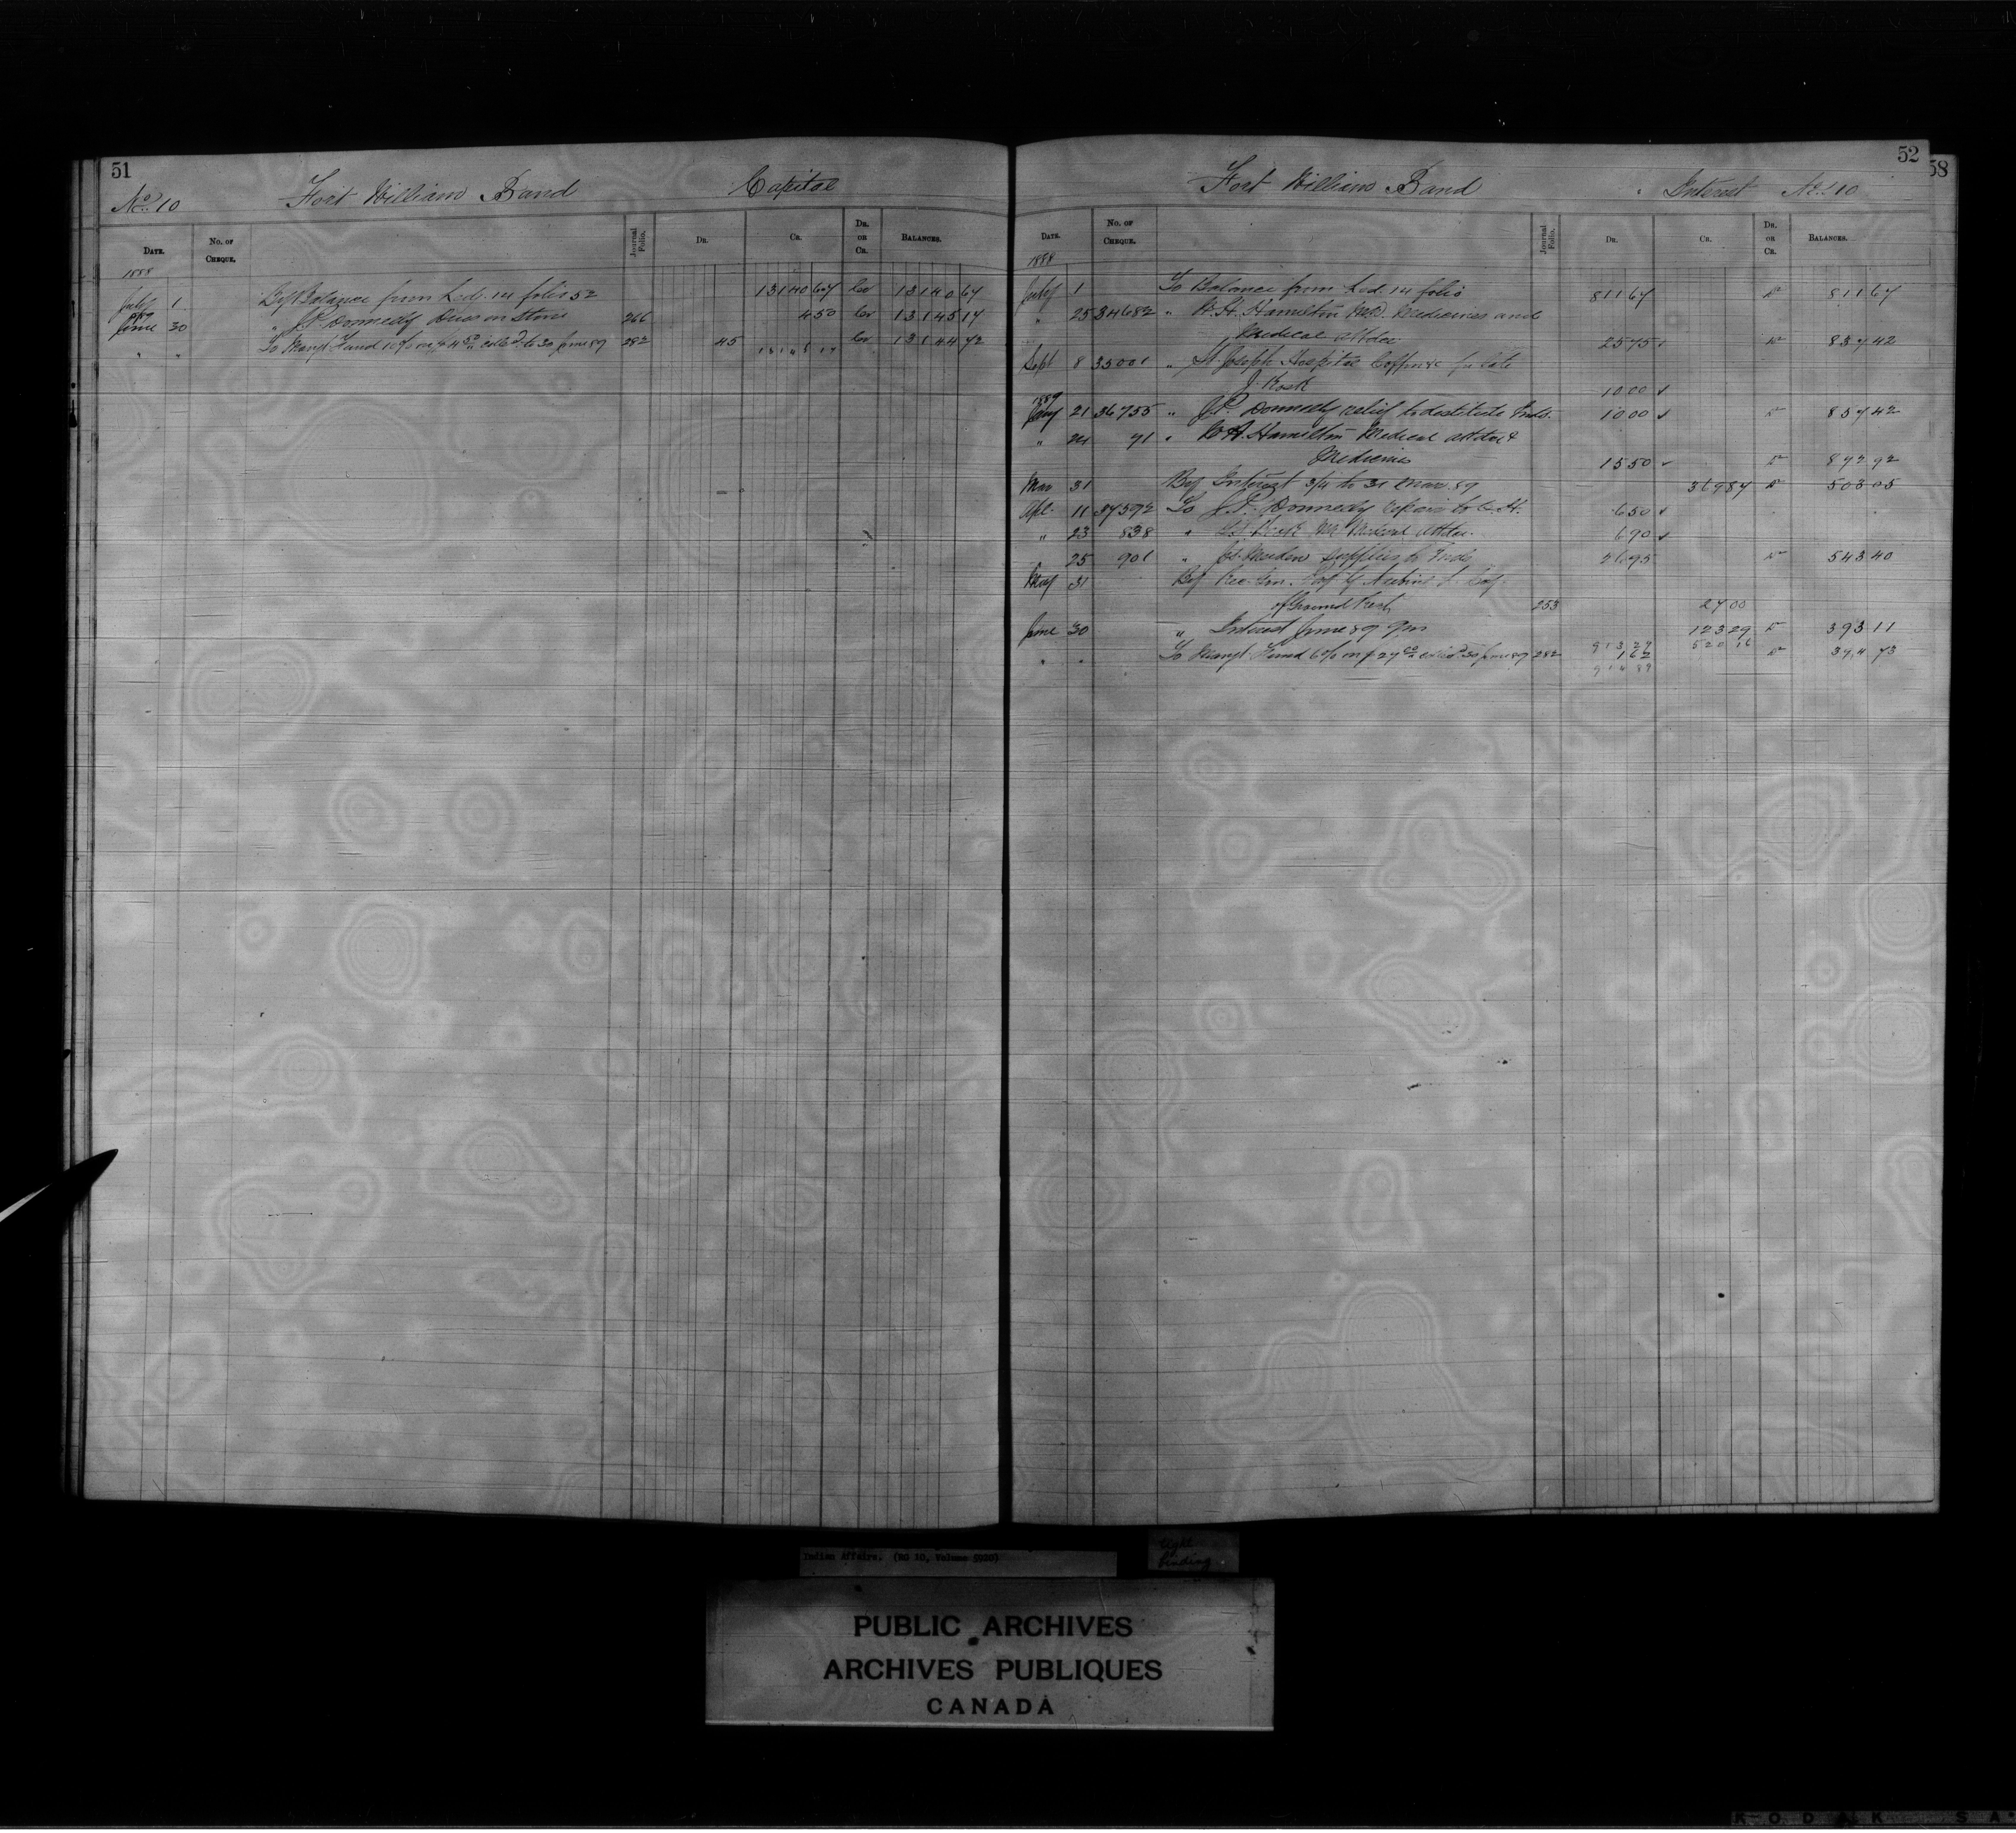 51
No. 10 Fort William Band Capital
DATE. No. OF CHEQUE. Journal Folio. DR. CR. DR. OR CR. BALANCES.
1888
July 1 By Balance from Led. 14 folio 52 13140 67 Cr 13140 67
1889
June 30 " J.P. Donnelly Dues on Stone 266 4 50 Cr 13145 17
" " To Mangt Fund 10% on $4.50 coll'd to 30 June 89 282 45 13145 17 Cr 13144 72
52
58
Fort William Band Interest No. 10
DATE. No. OF CHEQUE. Journal Folio. DR. CR. DR. OR CR. BALANCES.
1888
July 1 To Balance from Led. 14 folio 811 67 Dr 811 67
" 25 34682 " Hamilton M.D. Medicines and
Medical attdce 25 75 Dr 837 42
Sept 8 35001 " St. Joseph Hospital Coffin &c for late
J. 10 00
1889
Jany 21 36755 " J.P. Donnelly relief to destitute Inds. 10 00 Dr 857 42
" 24 71 " Hamilton Medical attdce &
Medicines 15 50 Dr 872 92
Mar 31 By Interest 3/4 to 31 Mar. 89 369 87 Dr 503 05
Apl. 11 37592 To J.P. Donnelly repairs to 6 50
" 23 838 " Medical attdce. 6 90
25 901 " supplies to Inds 26 95 Dr 543 40
May 31 By Rec. Gen.
of Ground Rent 253 27 00
June 30 " Interest June 89 123 29 Dr 393 11
" " To Mangt Fund 6% on $27.00 coll'd 30 June 89 282 913 27 1 62 520 16 Dr 394 73
914 89
Indian Affairs. (RG 10, Volume 5920)
tight
binding
PUBLIC ARCHIVES
ARCHIVES PUBLIQUES
CANADA
KODAK SA